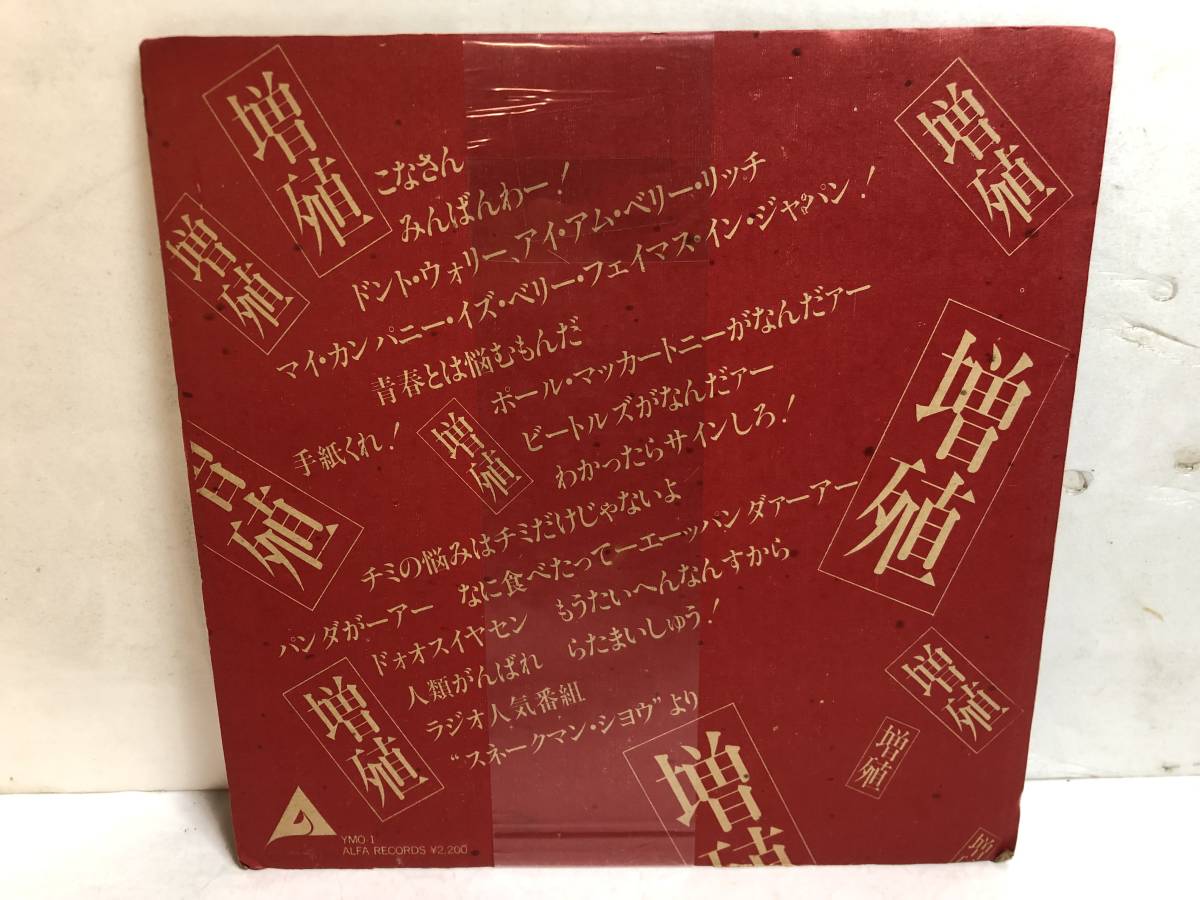 増殖
増殖
増殖
こなさん
みんばんわー!
ドント・ウォリー、アイ・アム・ベリー・リッチ
マイ・カンパニー・イズ・ベリー・フェイマス・イン・ジャパン!
青春とは悩むもんだ
ポール・マッカートニーがなんだァー
手紙くれ!
増殖
ビートルズがなんだァー
わかったらサインしろ!
増殖
増殖
チミの悩みはチミだけじゃないよ
パンダがーアー なに食べたってーエーッパンダァーアー
ドォオスイヤセン もうたいへんなんすから
人類がんばれ らたまいしゅう!
ラジオ人気番組
“スネークマン・ショウ”より
増殖
増殖
増殖
増殖
増殖
YMO-1
ALFA RECORDS ¥2,200